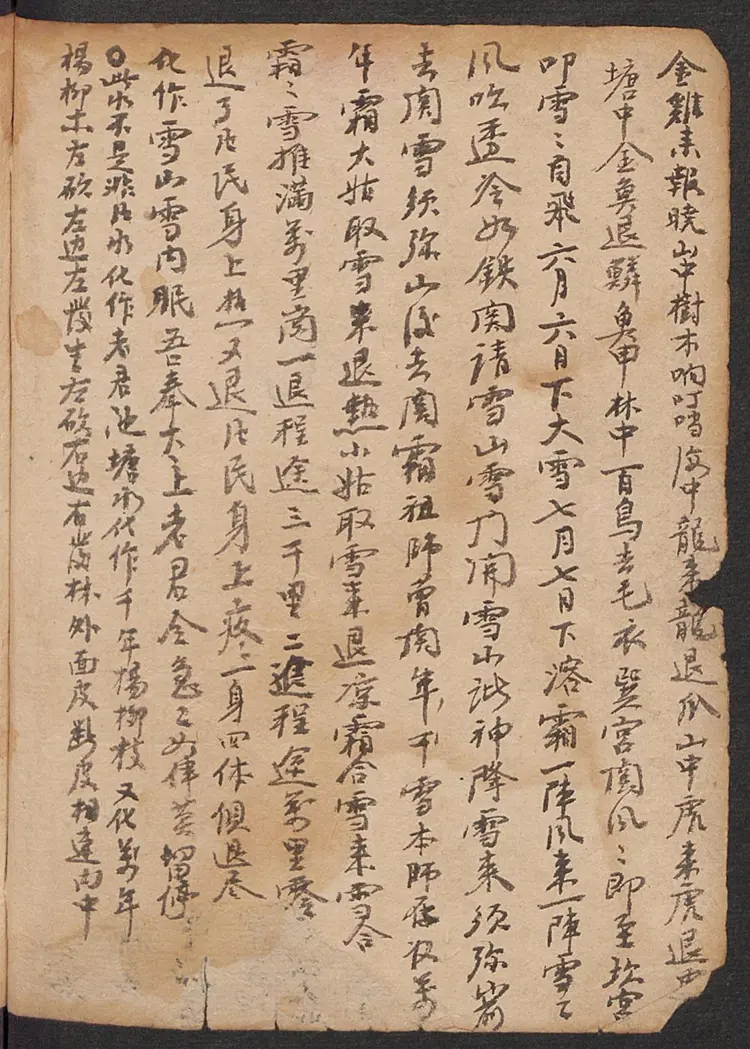 金雞未報曉山中樹木响叮噹海中龍來龍退爪山中虎來虎退
塘中金魚退鱗魚甲林中百鳥去毛衣巽宮闵風〻即至坎宮
叩雪〻自飛六月六日下大雪七月七日下溶霜一陣風來一陣雪〻
風吹透冷如鉄闵請雪山雪门開雪山訨神降雪來須弥
去闵雪須弥山後去闵霜祖師曾闵年千雪本師萬
年霜大姑取雪來退熱小姑取雪來退凉霜合雪來雪合
霜〻雪推满萬里崗一退程途三千里二退程途萬里零
退了凡民身上热又退凡民身上疼一身四体俱退尽
化作雪山雪内眠吾奉太上老君令急〻如律莫留停
○此水不是非凡水化作老君池塘水化作千年楊柳枝又化萬年
楊柳木左砍左边左發生右砍右边右發林外面皮断皮相連内中